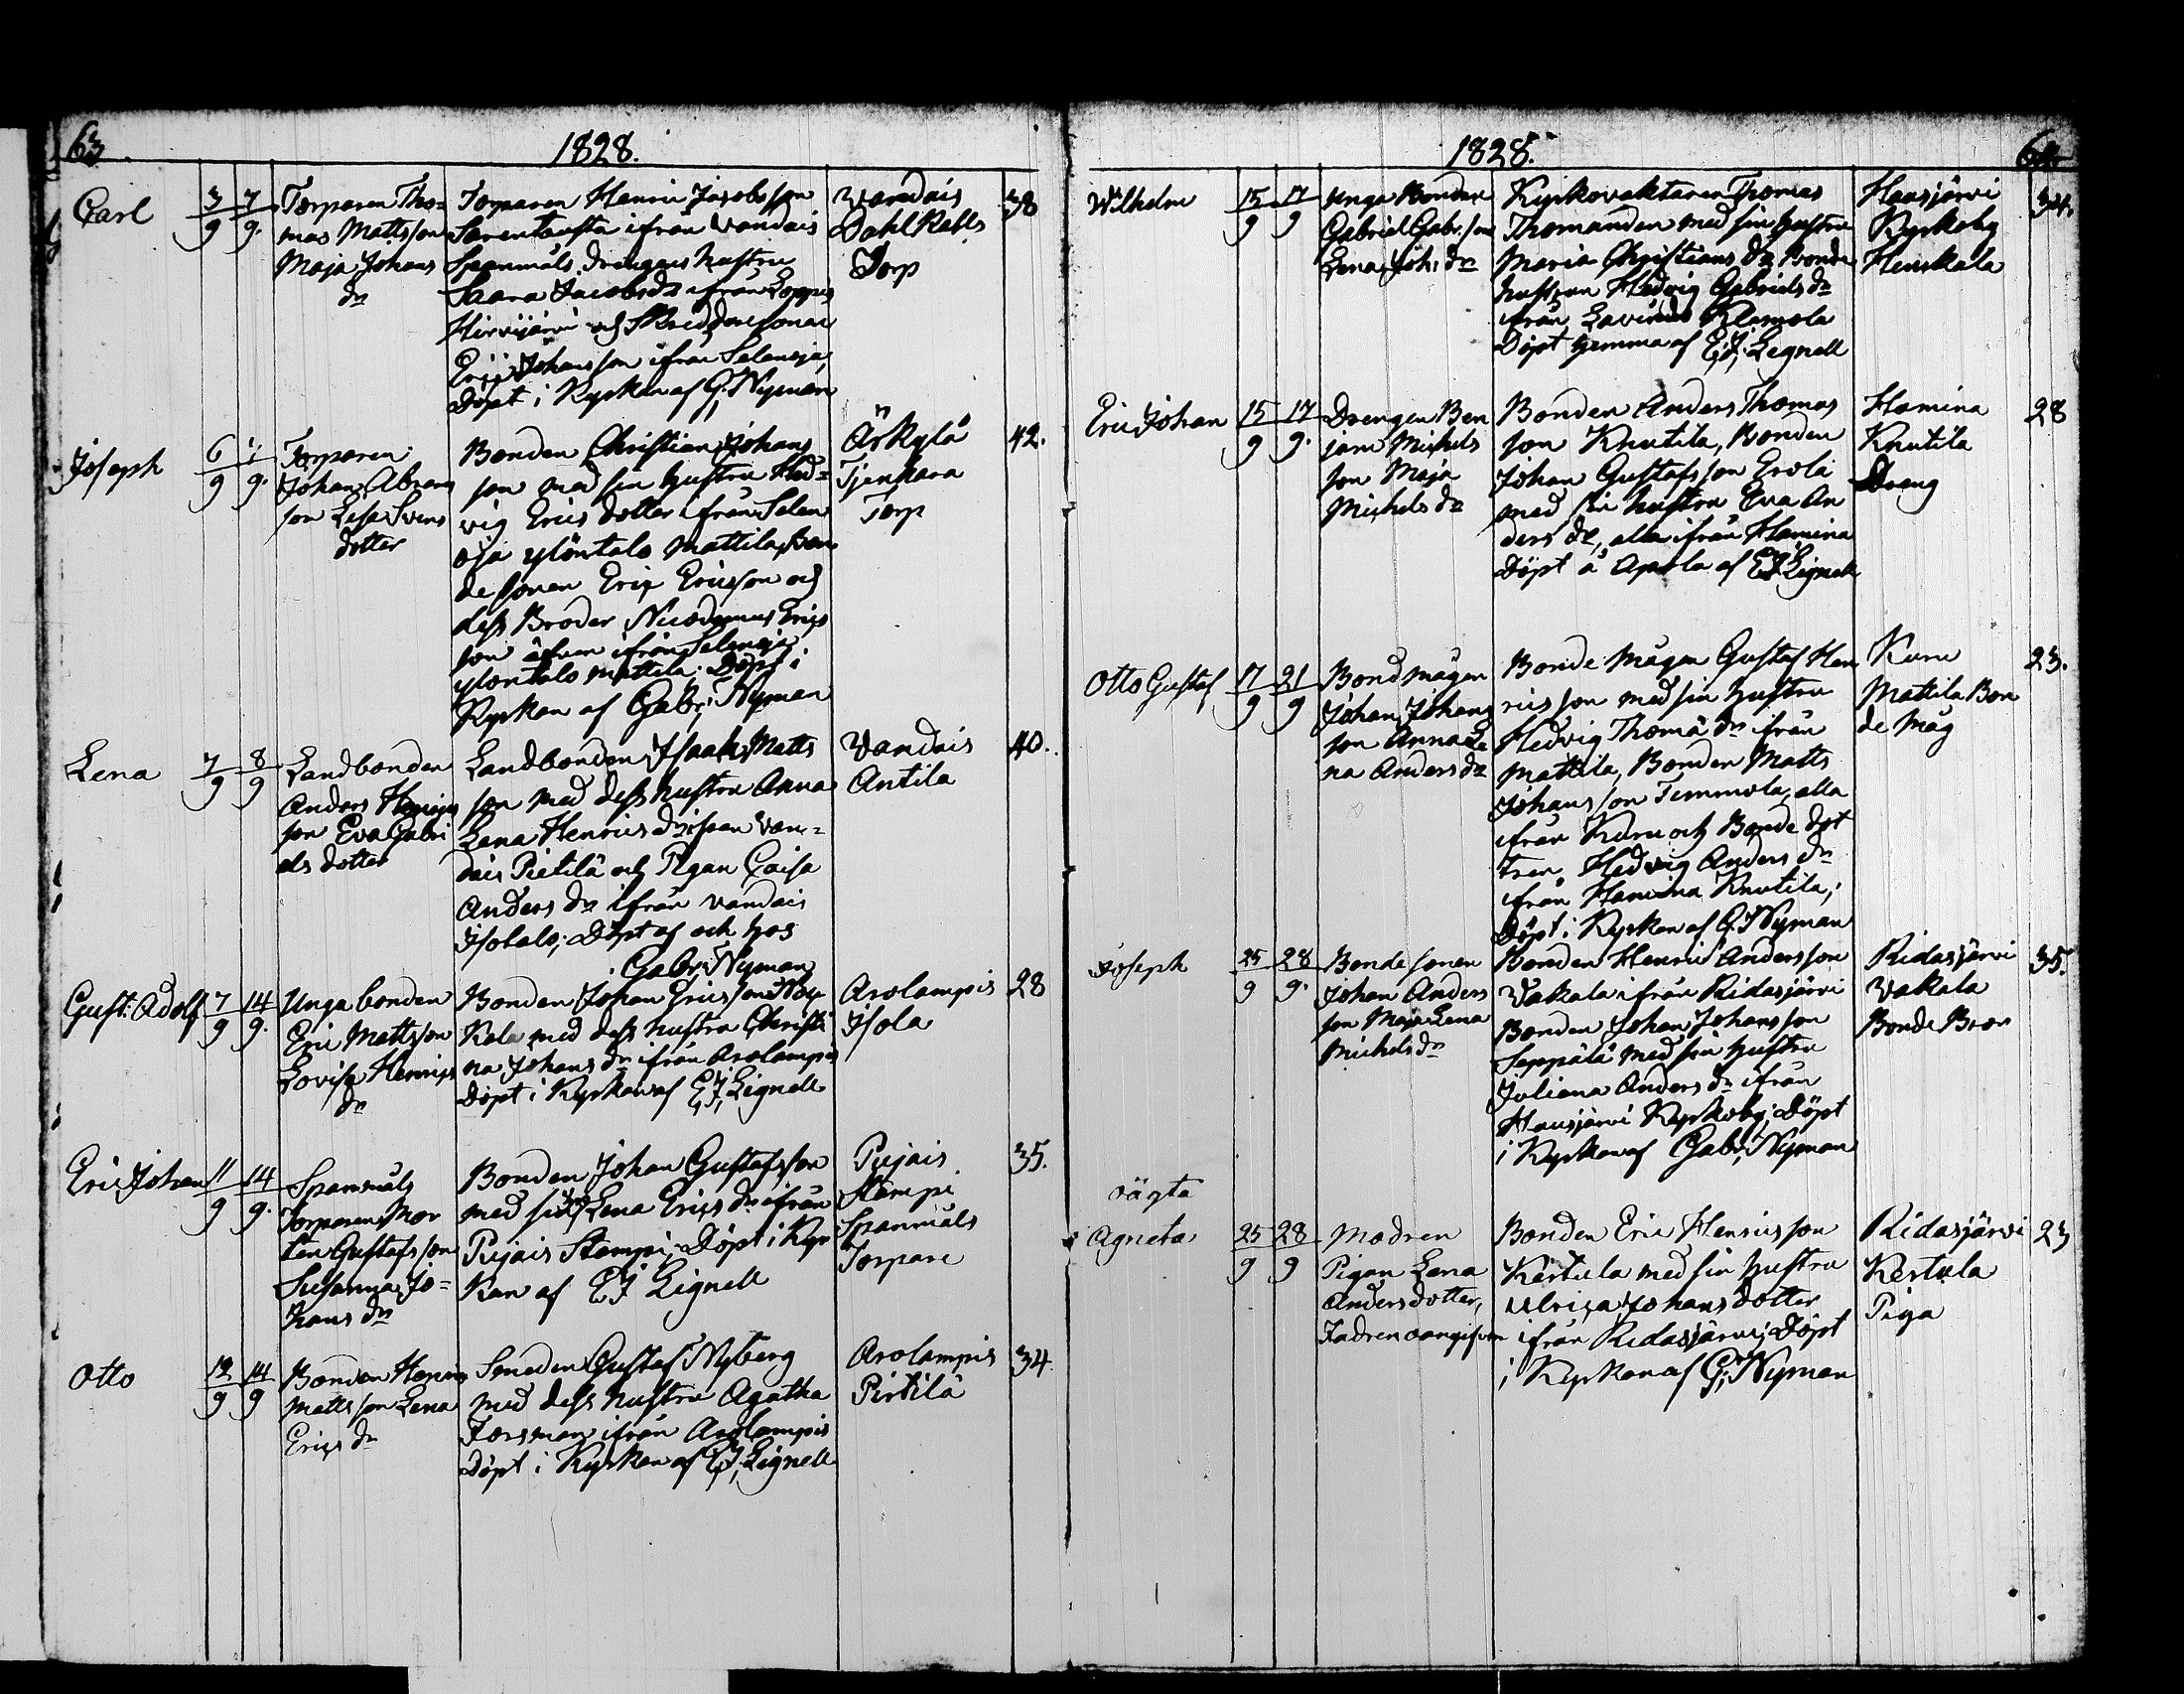 63
1828.
Carl
3/9
7/9.
Torparen Tho=
mas Mattsson
Maja Johans
dr
Torparen Henric Jacobsson
ifrån Vandais
Spanmåls drängens hustru
Saara Jacobsdr ifrån Loppis
Hirvijärvi och Skreddaresonen
Eric Johansson ifrån Selenoja,
Döpt i Kyrkan af G: Nyman
Vandais
Torp
38
Joseph
6/9
7/9.
Torparen
Johan Abrams
son Lisa Svens
dotter
Bonden Christian Johans
son med sin hustru Hed=
vig Erics dotter ifrån Selen
oja Ylöntalo Mattila, Bon
desonen Eric Ericsson och
dess Broder Nicodemus Erics
son äfven ifrån Selenoja
Ylöntalo Mattila; Döpt i
Kyrkan af Gabr; Nyman
Torp
42.
Lena
7/9
8/9
Landbonden
Anders Henrics
son Eva Gabri
els dotter
Landbonden Isaak Matts
son med dess hustru Anna
Lena Henrics dr ifrån Van=
dais Pietilä och Pigan Caisa
Anders dr ifrån Vandais
Isotalo; Döpt af och hos
Gabr; Nyman
Vandais
Antila
40.
Gust: Adolf
7/9
14/9.
Unga bonden
Eric Mattsson
Lovisa Henrics
dr
Bonden Johan Ericsson
med dess hustru Christi
na Johans dr ifrån Arolampis
Döpt i Kyrkan af E; J; Lignell
Arolampis
Isola
28
Eric Johan
11/9
14/9.
Spanmåls
Torparen Mår
ten Gustafsson
Susanna Jo=
hans dr
Bonden Johan Gustafsson
med Lena Erics dr ifrån
Pujais Stampi; Döpt i Kyr
kan af E J Lignell
Pujais
Stampi
Spanmåls
Torpare
35.
Otto
12/9
14/9
Bonden Henric
Mattsson Lena
Erics dr
Smeden Gustaf Nyberg
med dess hustru Agatha
Forsman ifrån Arolampis
Döpt i Kyrkan af E; J; Lignell
Arolampis
Pirtilä
34.
1828.
64
Wilhelm
15/9
17/9
Unga Bonden
Gabriel Gabr. son
Lena Joh: dr
Kyrkovaktaren Thomas
Thomander med sin hustru
Maria Christians dr Bonde
hustrun Hedvig Gabriels dr
ifrån
Döpt hemma af E; J; Lignell
Hausjärvi
Kyrkoby
Heuskala
34.
Eric Johan
15/9
17/9.
Drengen Ben
jam Michels
son Maja
Michels dr
Bonden Anders Thomas
son Knutila, Bonden
Johan Gustafsson Erola
med sin hustru Eva An
ders dr, alla ifrån Hamina
Döpt å af E J Lignell
Hamina
Knutila
Dreng
28
Otto Gustaf
17/9
21/9
Bondmågen
Johan Johans
son Anna Le
na Anders dr
Bonde mågen Gustaf Hen
ricsson med sin hustru
Hedvig Thomæ dr ifrån
Mattila, Bonden Matts
Johansson Temmola, alla
ifrån Kuru och Bonde dot
tren Hedvig Anders dr
ifrån Hamina Knutila;
Döpt i Kyrkan af G: Nyman
Kuru
Mattila Bon
de Måg
23.
Joseph
25/9
28/9.
Bondesonen
Johan Anders
son Maja Lena
Michels dr
Bonden Henric Andersson
Vakala ifrån Ridasjärvi
Bonden Johan Johansson
Seppälä med sin hustru
Juliana Anders dr ifrån
Hausjärvi Kyrkoby; Döpt
i Kyrkan af Gabr; Nyman
Ridasjärvi
Vakala
Bonde Bror
35.
oägta
Agneta
25/9
28/9
Modren
Pigan Lena
Anders dotter,
Fadren oangifven
Bonden Eric Henricsson
Kertula med sin hustru
Ulrica Johans dotter
ifrån Ridasjärvi; Döpt
i Kyrkan af G; Nyman
Ridasjärvi
Kertula
Piga
23